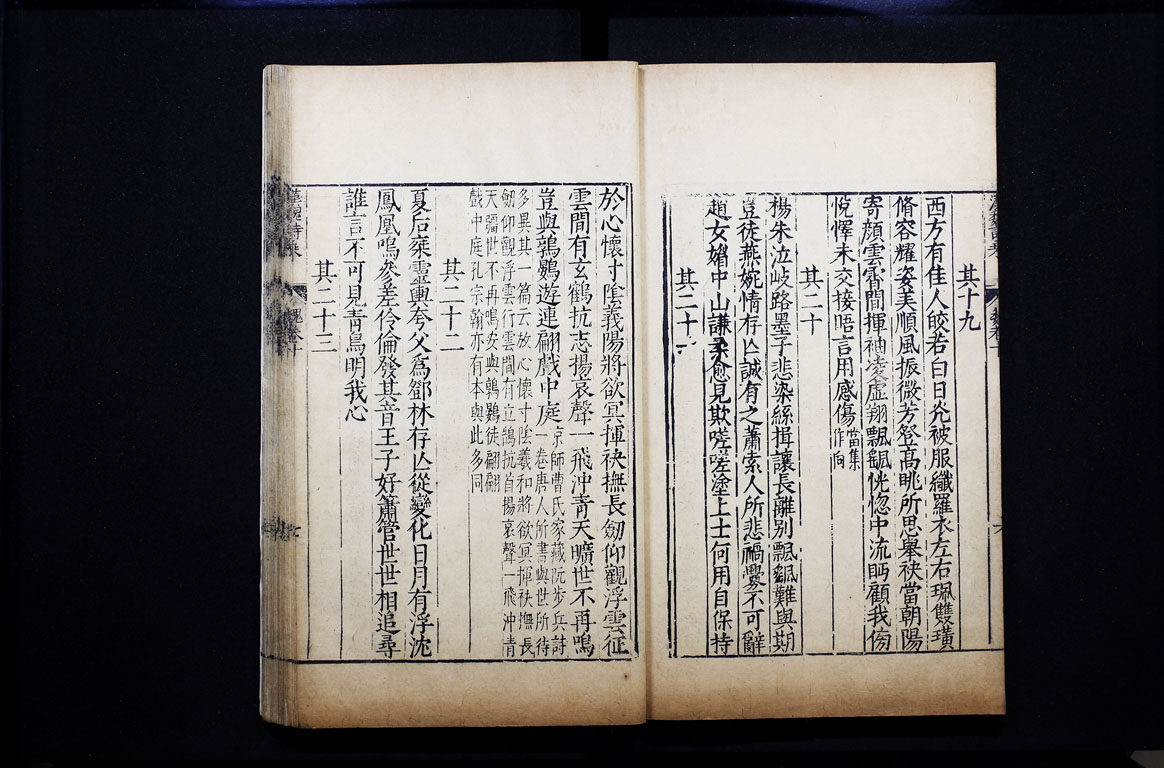 其十九
西方有佳人皎若白日光被服纖羅衣左右珮雙璜
脩容耀姿美順風振微芳登高眺所思舉袂當朝陽
寄顏雲霄間揮袖凌虛翔飄颻恍惚中流眄顧我傍
悅懌未交接晤言用感傷當集作向
其二十
楊朱泣岐路墨子悲染絲揖讓長離別飄颻難與期
豈徒燕婉情存亾誠有之蕭索人所悲禍釁不可辭
趙女媚中山謙柔愈見欺嗟嗟塗上士何用自保持
其二十
於心懷寸陰義陽將欲冥揮袂撫長劒仰觀浮雲征
雲間有玄鶴抗志揚哀聲一飛沖青天曠世不再鳴
豈與鶉鷃遊連翩戲中庭京師曹氏家藏阮步兵詩
一卷唐人所書與世所待
多異其一篇云放心懷寸陰羲和將欲冥揮袂撫長
劒仰觀浮雲行雲間有立鵠抗首揚哀聲一飛沖青
天彊世不再鳴安與鶉鷃徒翩翩
戲中庭孔宗翰亦有本與此多同
其二十二
夏后乗靈輿夸父為鄧林存亾從變化日月有浮沈
鳳凰鳴參差伶倫發其音王子好簫管世世相追尋
誰言不可見青鳥明我心
其二十三